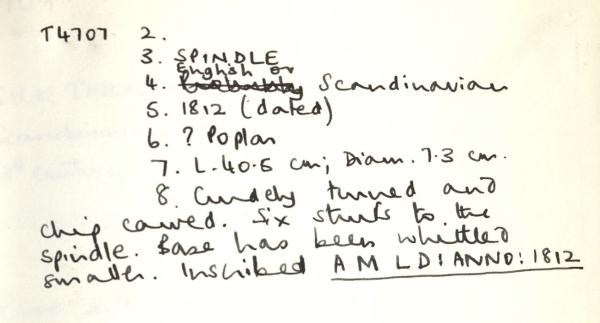 T4707 2.
3. SPINDLE
English or
4. Probably Scandinavian
5. 1812 (dated)
6. ? Poplar
7. L. 40.5 cm; Diam. 7.3 cm.
8. Crudely turned and
chip carved. Six struts to the
spindle. Base has been whittled
smaller. Inscribed A M L D : ANNO : 1812